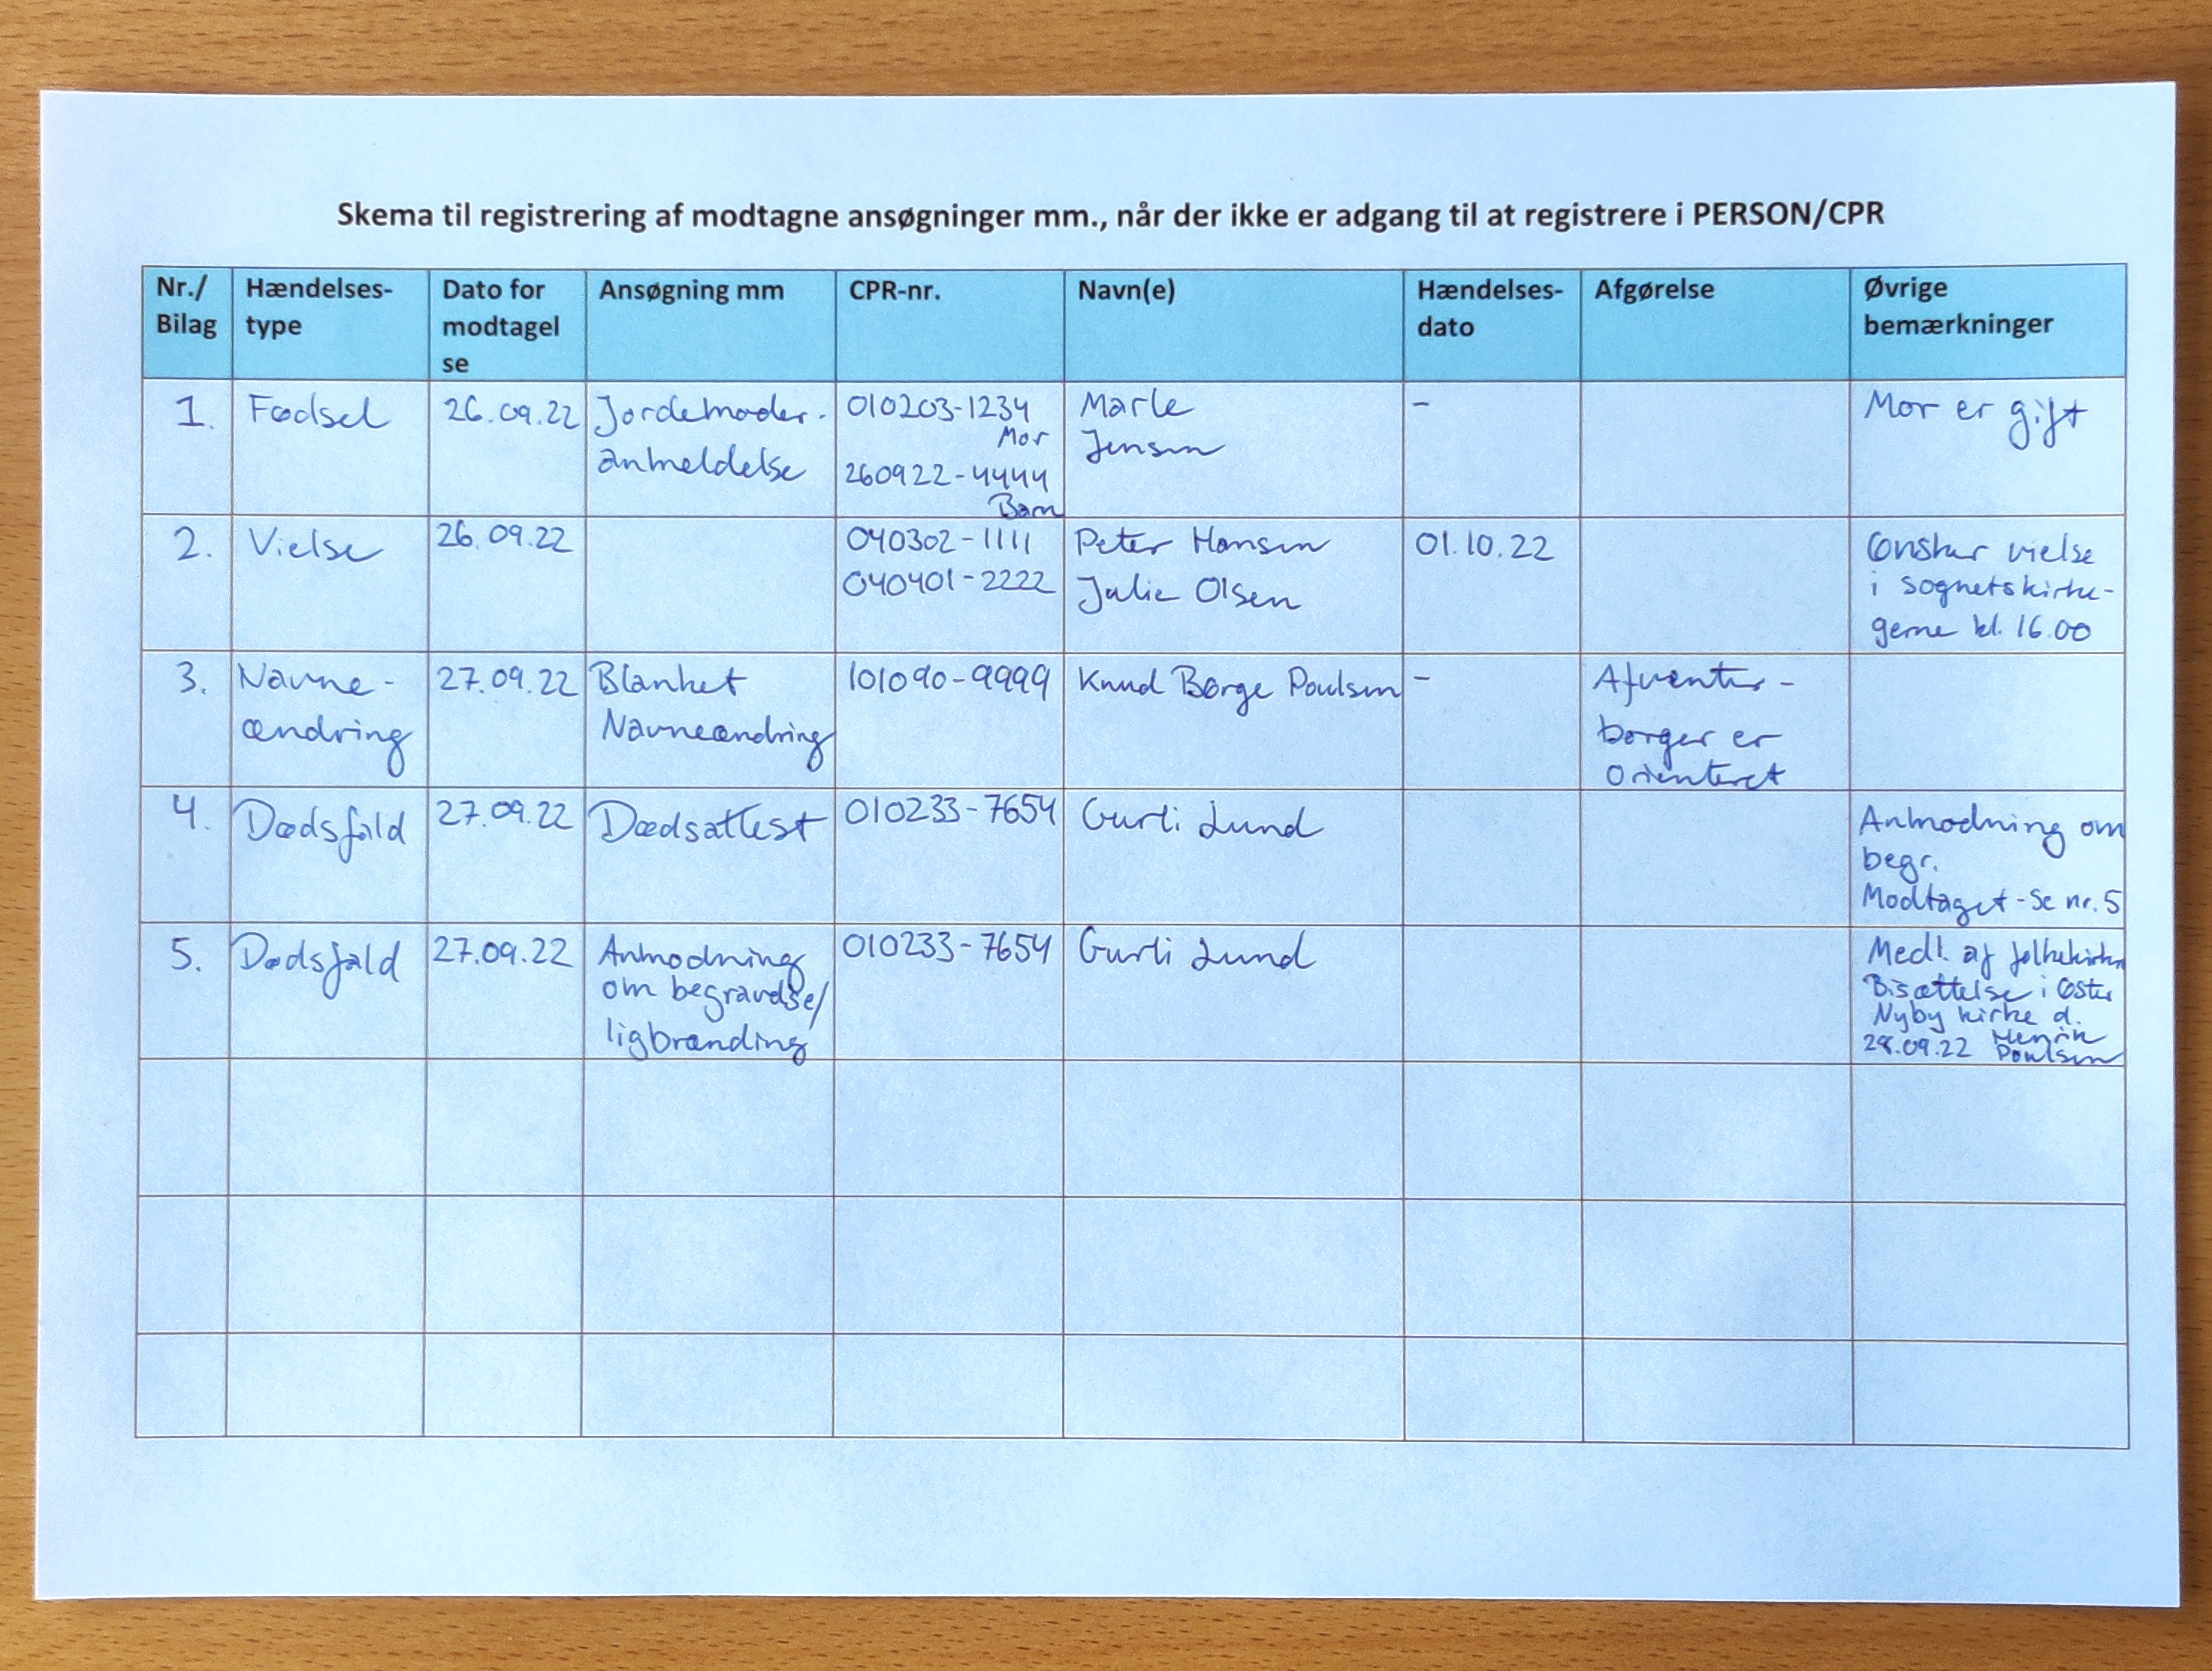 Skema til registrering af modtagne ansøgninger mm., når der ikke er adgang til at registrere i PERSON/CPR
Nr./
Bilag
Hændelses-
type
Dato for
modtagel
se
Ansøgning mm
CPR-nr.
Navn(e)
Hændelses-
dato
Afgørelse
Øvrige
bemærkninger
1.
Fødsel
26.09.22
Jordemoder-
anmeldelse
010203-1234
Mor
260922-4444
Barn
Marle
Jensen
-
Mor er gift
2.
Vielse
26.09.22
040302-1111
040401-2222
Peter Hansen
Julie Olsen
01.10.22
Ønsker vielse
i sognets kirke-
gerne kl. 16.00
3.
Navne-
ændring
27.09.22
Blanket
Navneændring
101090-9999
Knud Børge Poulsen
-
Afventer -
borger er
orienteret
4.
Dødsfald
27.09.22
Dødsattest
010233-7654
Gurli Lund
Anmodning om
begr.
Modtaget - Se nr. 5
5.
Dødsfald
27.09.22
Anmodning
om begravelse/
ligbrænding
010233-7654
Gurli Lund
Medl. af folkekirken
Bisættelse i Øster
Nyby kirke d.
28.09.22 Henrik
Poulsen